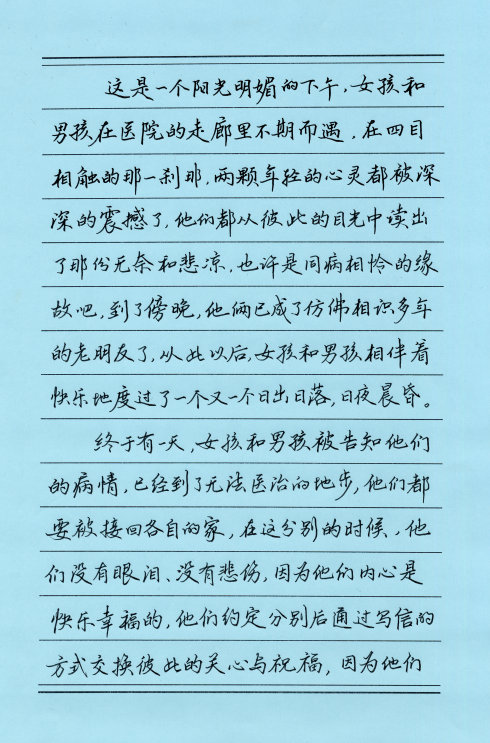 这是一个阳光明媚的下午，女孩和
男孩在医院的走廊里不期而遇，在四目
相触的那一刹那，两颗年轻的心灵都被深
深的震撼了，他们都从彼此的目光中读出
了那份无奈和悲凉，也许是同病相怜的缘
故吧，到了傍晚，他俩已成了仿佛相识多年
的老朋友了，从此以后，女孩和男孩相伴着
快乐地度过了一个又一个日出日落，日夜晨昏。
终于有一天，女孩和男孩被告知他们
的病情，已经到了无法医治的地步，他们都
要被接回各自的家，在这分别的时候，他
们没有眼泪、没有悲伤，因为他们内心是
快乐幸福的，他们约定分别后通过写信的
方式交换彼此的关心与祝福，因为他们